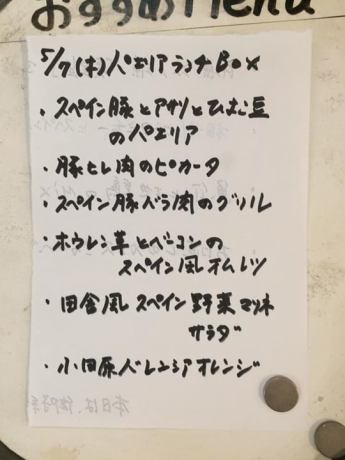 おすすめMenu
5/7(木)パエリアランチBOX
・スペイン豚とアサリとひよこ豆
のパエリア
・豚ヒレ肉のピカータ
・スペイン豚バラ肉のグリル
・ホウレン草とベーコンの
スペイン風オムレツ
・田舎風スペイン野菜マリネ
サラダ
・小田原バレンシアオレンジ